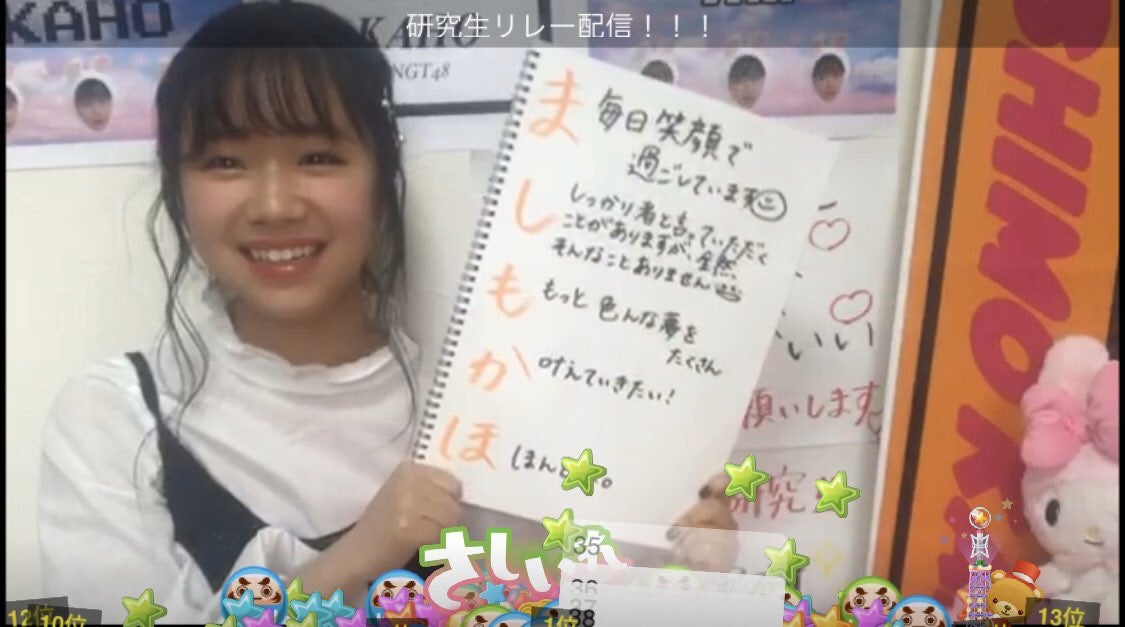 研究生リレー配信！！！
KAHO
KAHO
NGT48
ま 毎日笑顔で
過ごしています
し しっかり者と言っていただく
ことがありますが、全然
そんなことありません
も もっと色んな夢を
たくさん
か 叶えていきたい！
ほ
いい
願いします
研究
BHIMO
35
36
37
38
12位
10位
1位
13位